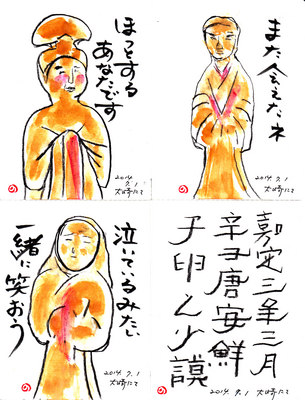 ほっとする
あなたです
2014.
9.1
大崎にて
また会えたネ
2014.
9.1
大崎にて
泣いているみたい
一緒に笑おう
2014. 9.1
大崎にて
嘉定三年三月
辛丑唐安鮮
2014. 9. 1 大崎にて